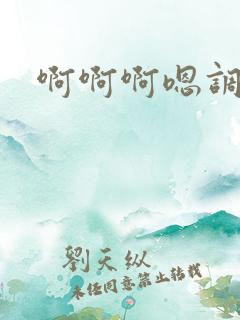 啊啊啊嗯調
劉天纵
未任同意禁止转载